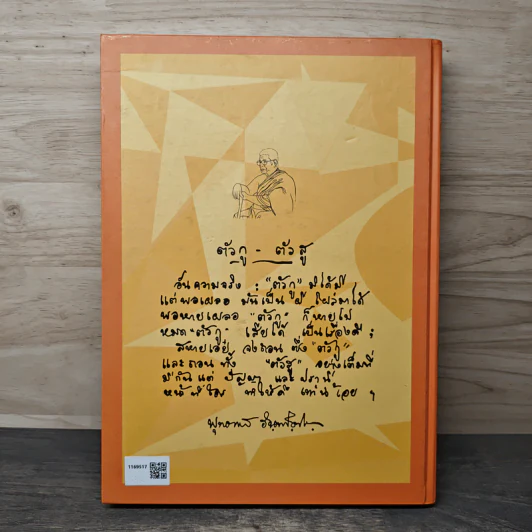 ตัวกู - ตัวสู
อันความจริง : "ตัวกู" มิได้มี
แต่พอเผลอ มันเป็นผี โผล่มาได้
พอหายเผลอ "ตัวกู" ก็หายไป
หมด "ตัวกู" เสียได้ เป็นเรื่องดี ;
สหายเอ๋ย จงถอน ซึ่ง "ตัวกู"
และถอนทั้ง "ตัวสู" อย่างเต็มที่
มีกันแต่ ปัญญา และปรานี
หน้าที่ใคร ทำให้ดี เท่านี้เอย ฯ
พุทธทาส อินทปัญโญ
1168517